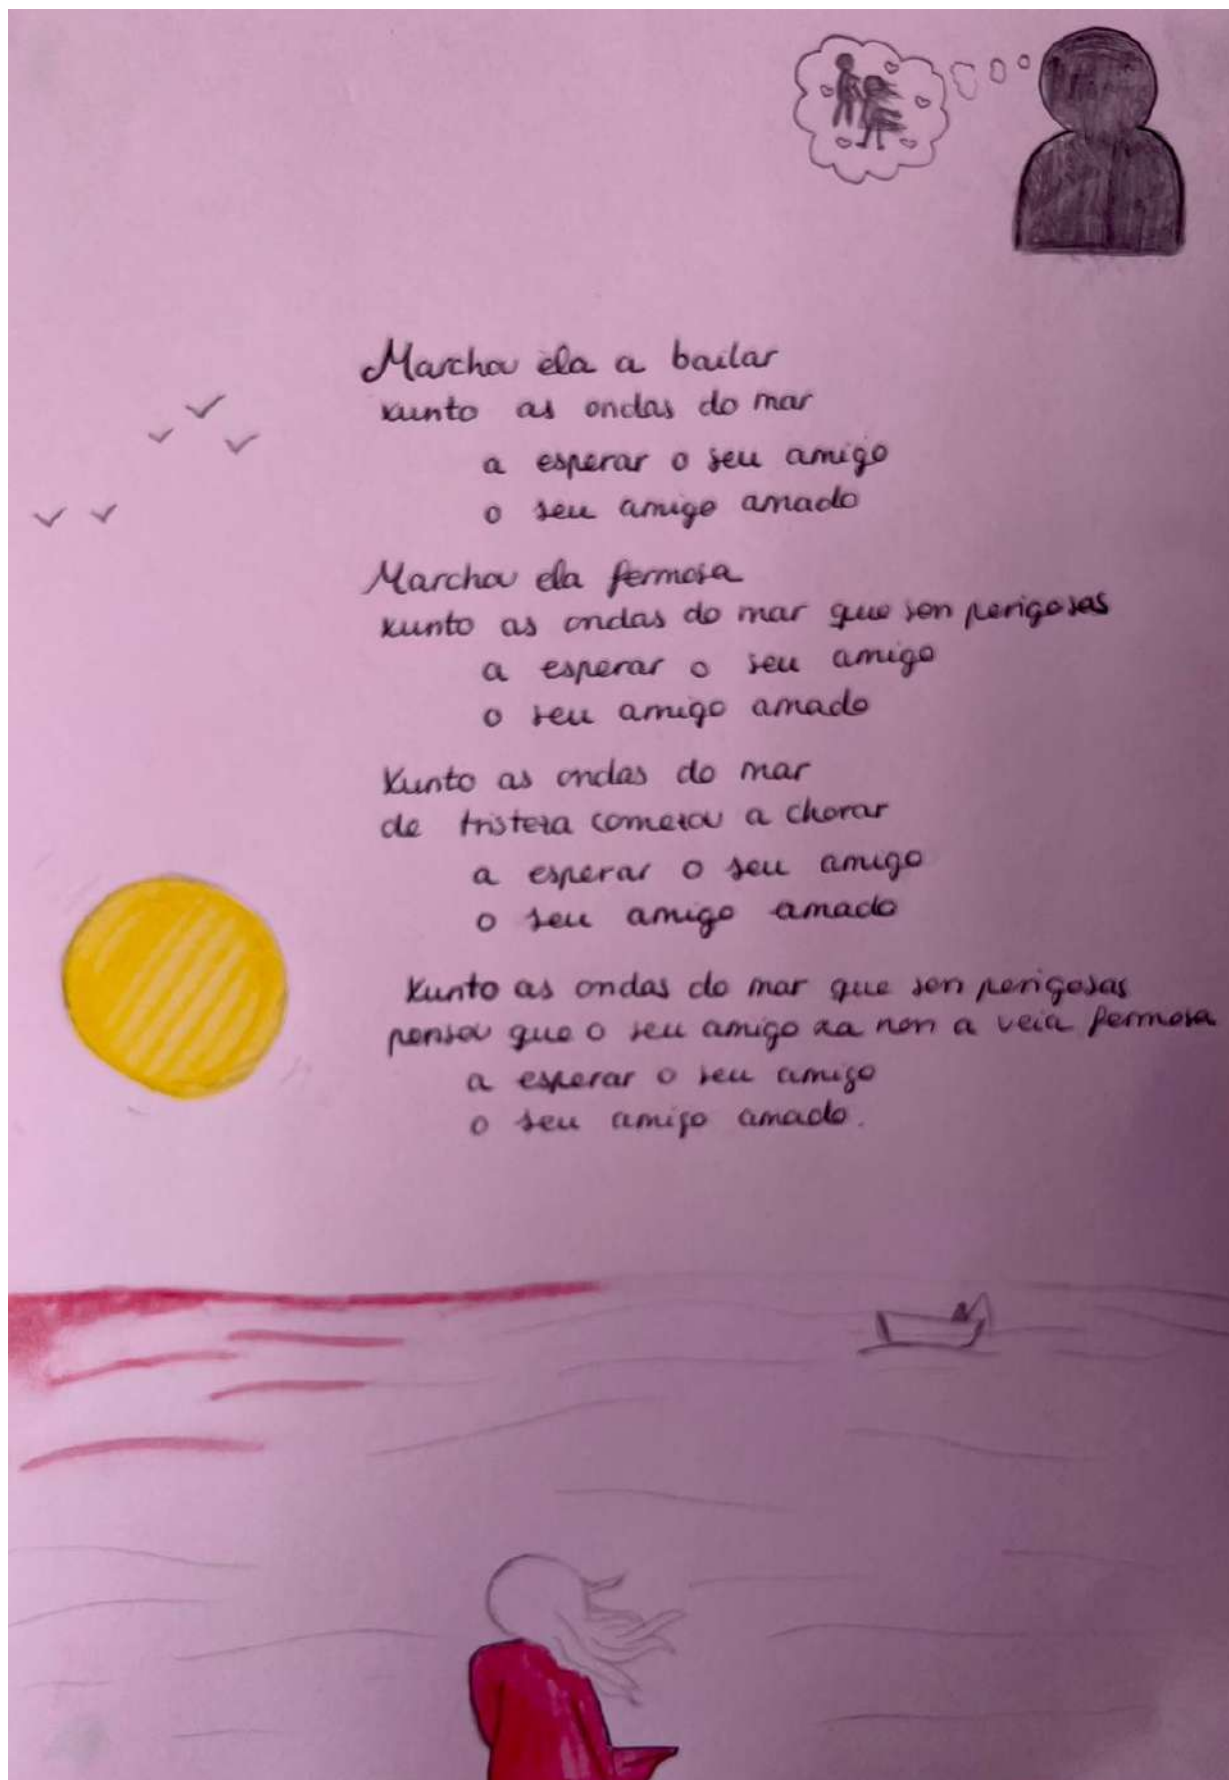 Marchou ela a bailar
xunto as ondas do mar
a esperar o seu amigo
o seu amigo amado
Marchou ela fermosa
xunto as ondas do mar que son perigosas
a esperar o seu amigo
o seu amigo amado
Xunto as ondas do mar
de tristeza comezou a chorar
a esperar o seu amigo
o seu amigo amado
Xunto as ondas do mar que son perigosas
pensou que o seu amigo xa non a veia fermosa
a esperar o seu amigo
o seu amigo amado.